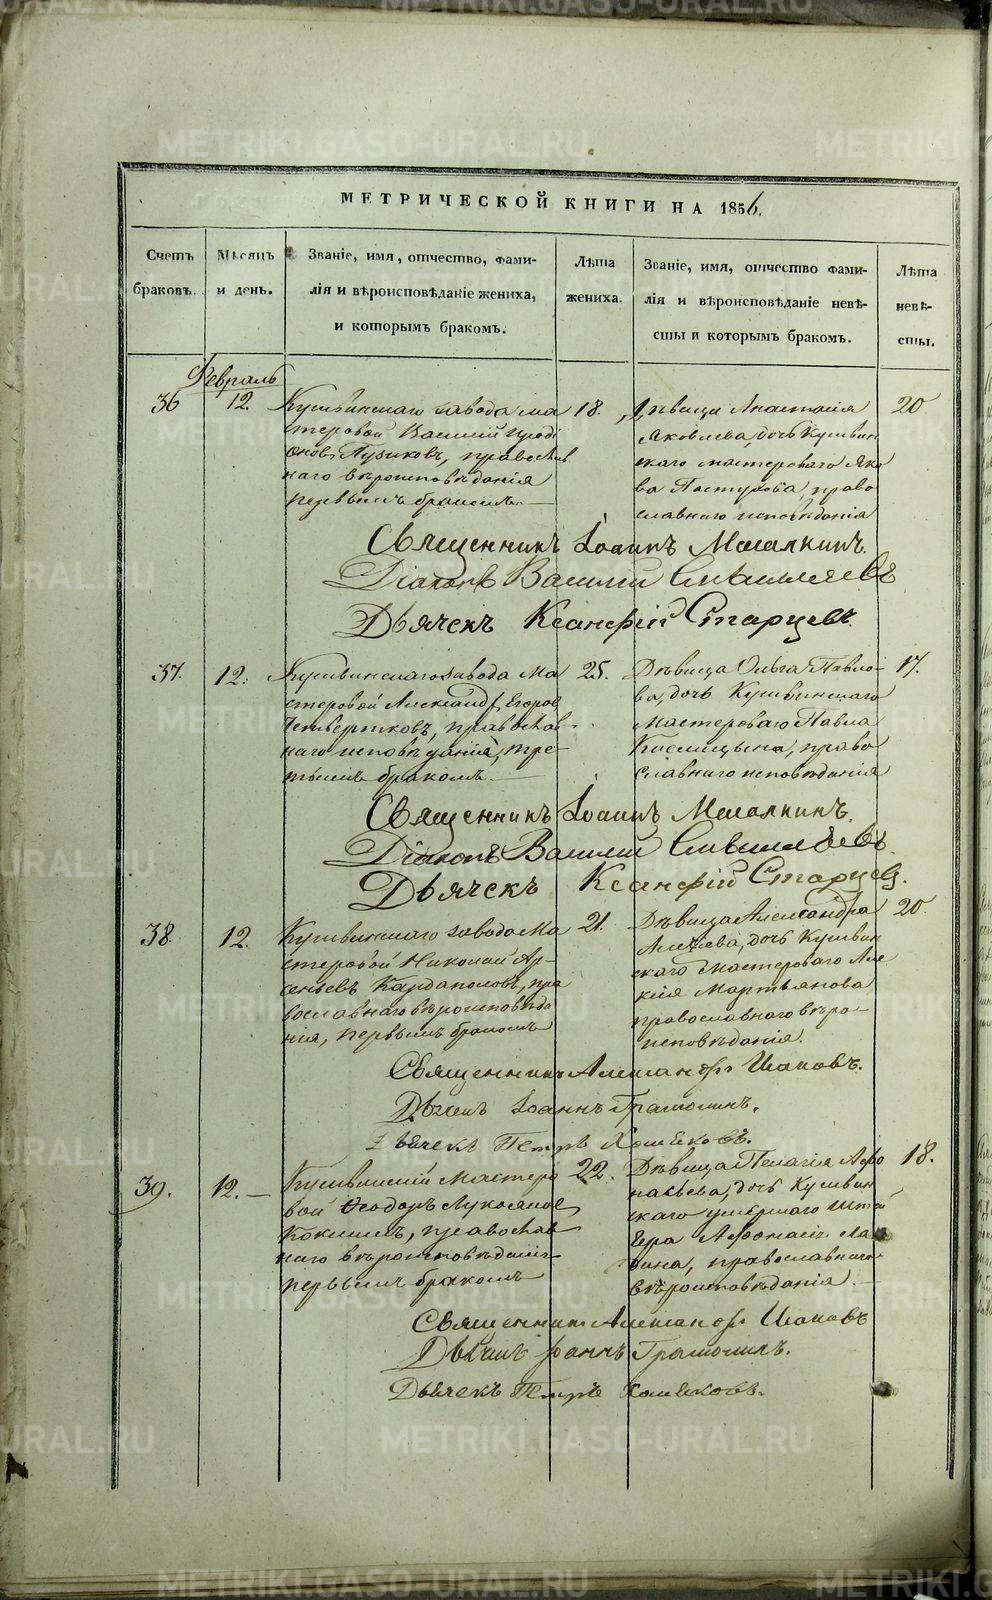 METRIKI.GASO-URAL.RU
МЕТРИЧЕСКОЙ КНИГИ НА 1856.
Счетъ браковъ.
Мѣсяцъ и день.
Званіе, имя, отчество, фами-
лія и вѣроисповѣданіе жениха,
и которымъ бракомъ.
Лѣта
жениха.
Званіе, имя, отчество фами-
лія и вѣроисповѣданіе невѣ-
сты и которымъ бракомъ.
Лѣта
невѣ-
сты.
Февраль
36
12.
Кушвинскаго завода ма
стеровой Василій Ироді
оновъ Пузиковъ, православ
наго вѣроисповѣданія
первымъ бракомъ.
18.
Дѣвица Анастасія
Яковлева, дочь Кушвин
скаго мастероваго Яко
ва Пастухова, право
славнаго исповѣданія
20
Священникъ Іоаннъ
Діаконъ Василій
Дьячекъ Ксанфій Старцевъ.
37.
12.
Кушвинскаго завода Ма
стеровой Александр Егоров
Четвертковъ, православ-
наго исповѣданія, тре-
тьимъ бракомъ.
25.
Дѣвица Ольга Павло-
ва, дочь Кушвинскаго
Мастероваго Павла
Кислицына, право
славнаго исповѣданія
17.
Священникъ Іоаннъ
Діаконъ Василій
Дьячекъ Ксанфій Старцевъ.
38.
12.
Кушвинскаго завода Ма
стеровой Николай Ар-
сеньевъ Кардаполовъ, пра
вославнаго вѣроисповѣда
нія, первымъ бракомъ
21.
Дѣвица Александра
Алексѣева, дочь Кушвин
скаго Мастероваго Але
ксія Мартьянова
православнаго вѣро-
исповѣданія.
20.
Священникъ Александръ
Іоаннъ Грамолинъ.
Дьячекъ Петръ Хомяковъ.
39.
12.
Кушвинскій Мастеро
вой Ѳеодоръ Лукояновъ
Кокшинъ, православ
наго вѣроисповѣданія
первымъ бракомъ
22.
Дѣвица Пелагія Афо
насьева, дочь Кушвин
скаго умершаго Штей
гера Афонасія
православнаго
вѣроисповѣданія.
18.
Священникъ Александръ
Іоаннъ Грамолинъ.
Дьячекъ Петръ Хомяковъ.